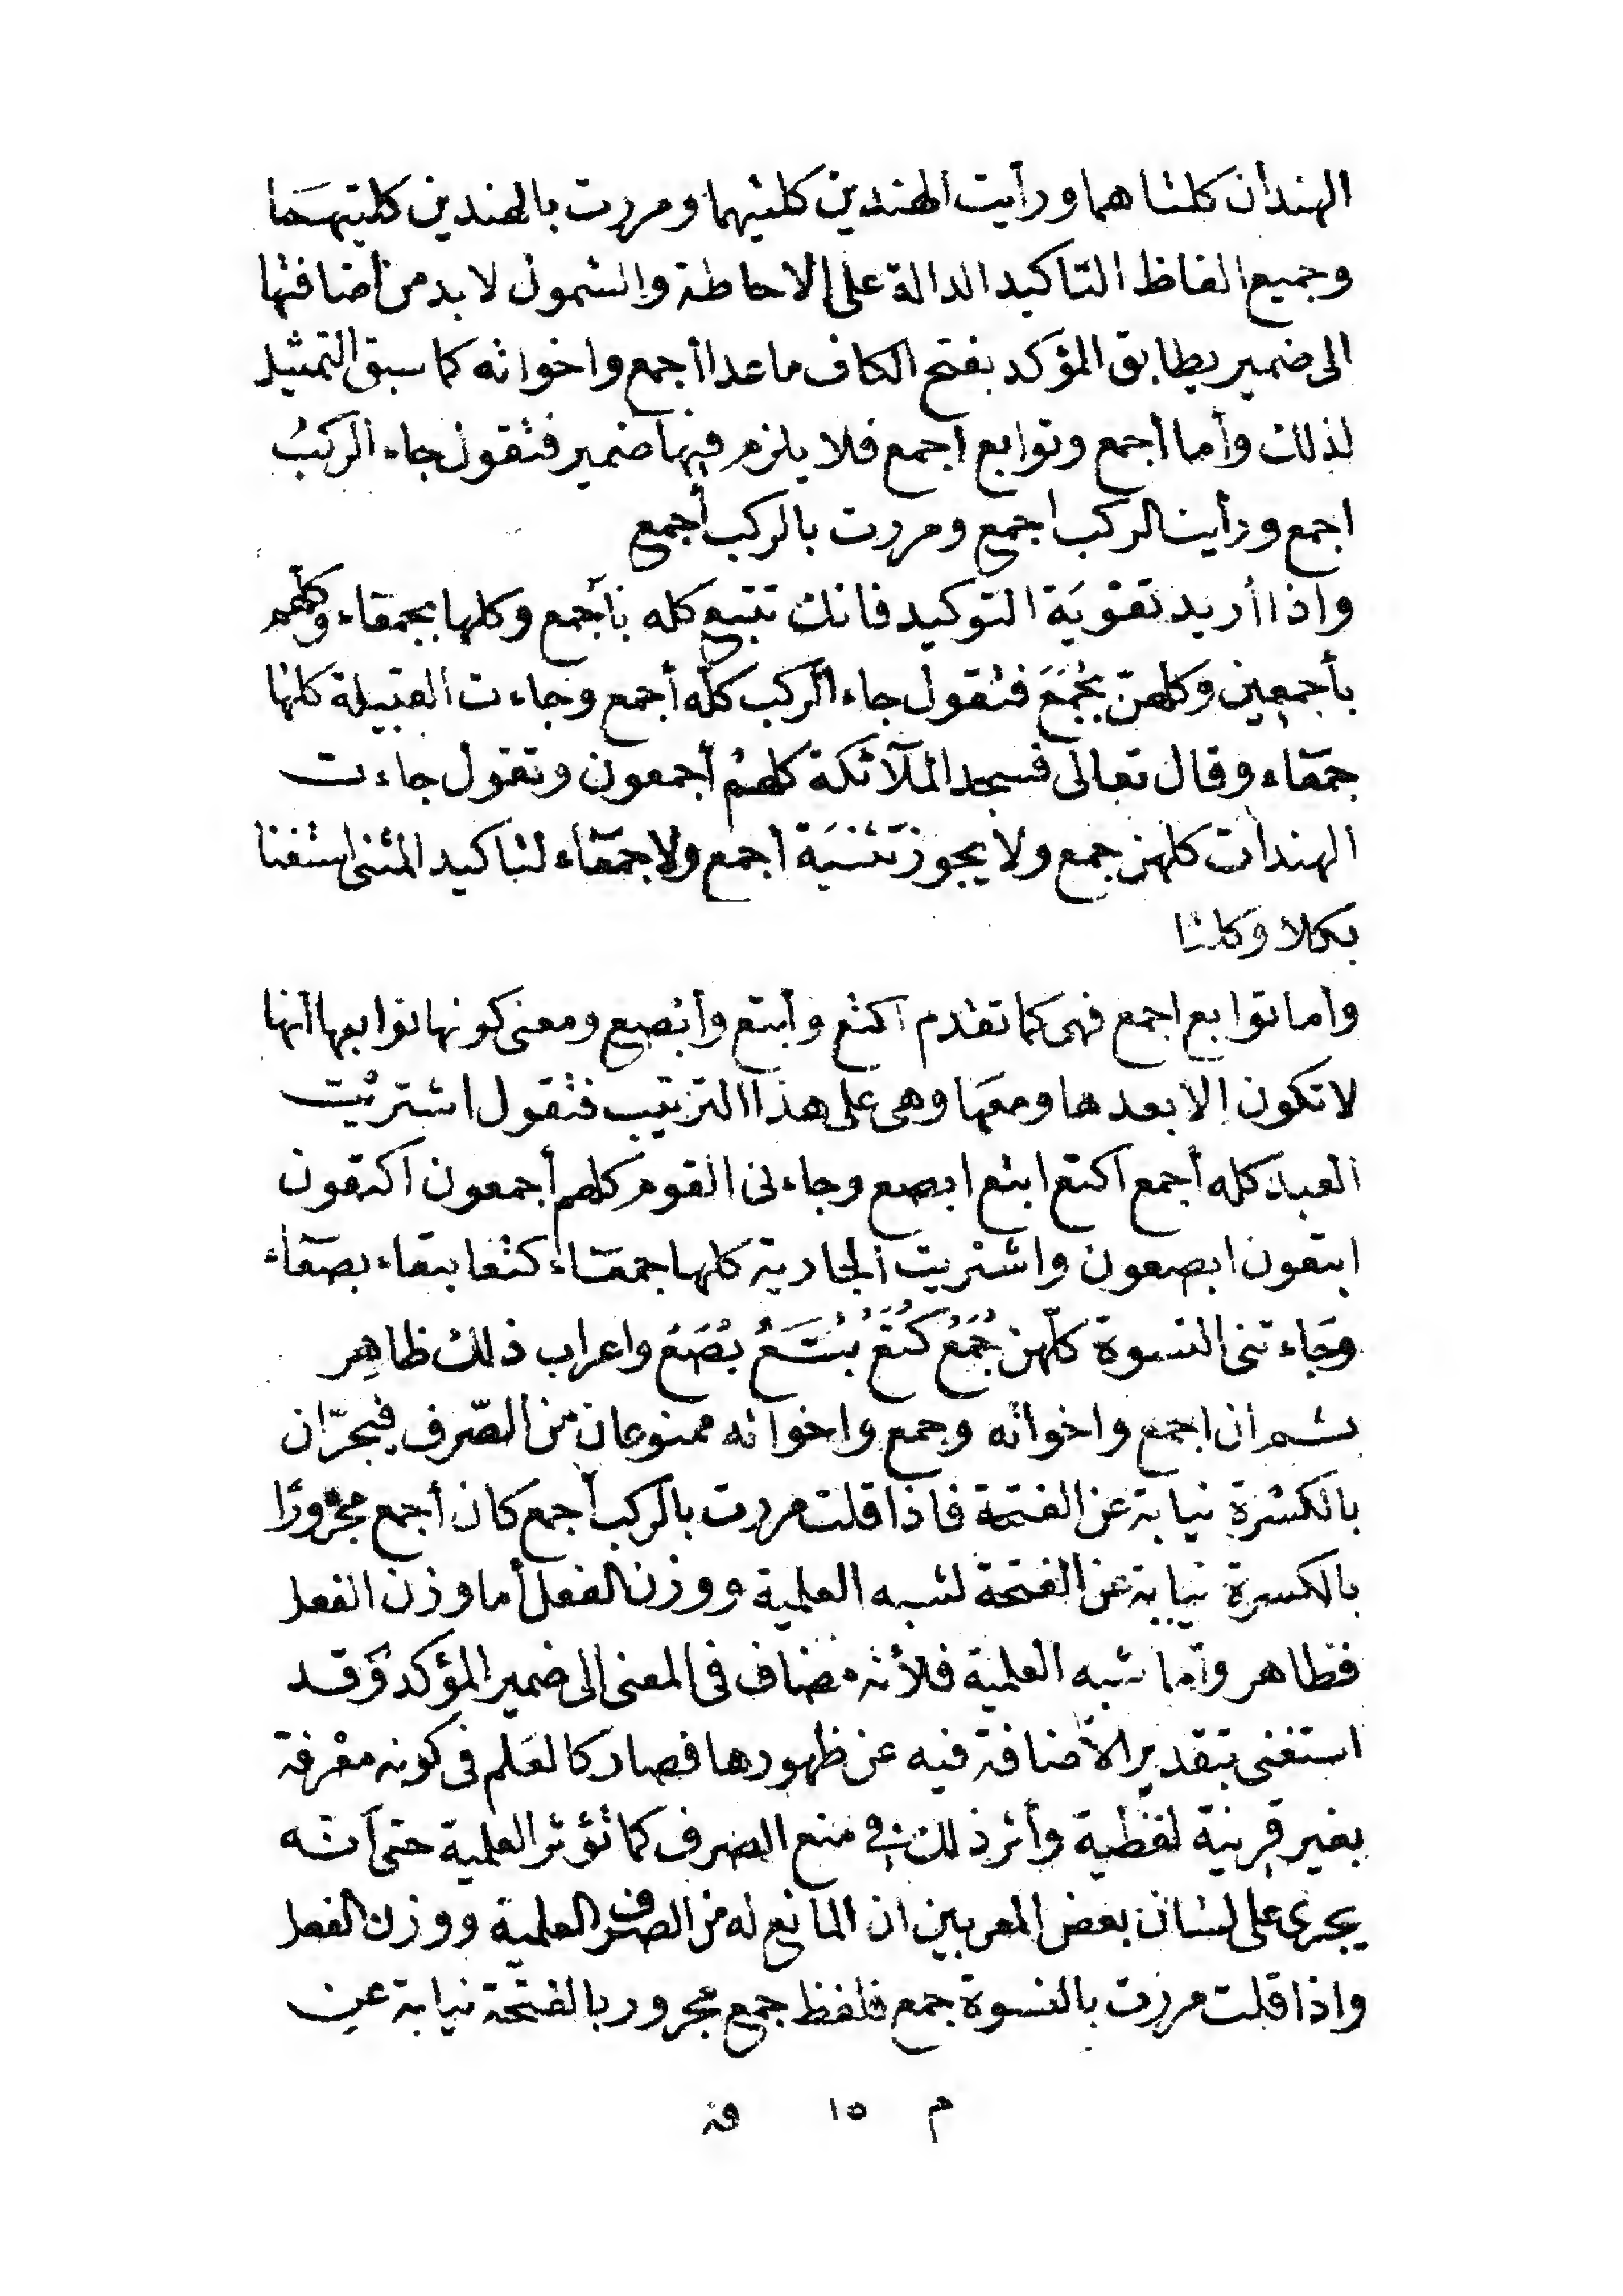 الهندان كلتاهما ورأيت الهندين كلتيهما ومررت بالهندين كلتيهما
وجميع الفاظ التاكيد الدالة على الاحاطة والشمول لا بد من أضافتها
الى ضمير يطابق المؤكد بفتح الكاف ما عدا أجمع واخواته كما سبق التمثيل
لذلك وأما أجمع وتوابع أجمع فلا يلزم فيها ضمير فتقول جاء الركبُ
اجمع ورأينا الركب اجمع ومررت بالركب أجمع
واذا أريد تقويَة التوكيد فانك تتبع كله بأجمع وكلها بجمعاء وكلّهم
بأجمعين وكلهنّ بجُمَعَ فتقول جاء الركب كلّه أجمع وجاءت القبيلة كلها
جمعَاء وقال تعالى فسجد الملآئكة كلهمْ أجمعون وتقول جاءت
الهندات كلهن جمع ولا يجوز تثنيَة أجمع ولا جمعَاء لتاكيد المثنى استغنا
بكلا وكلتا
وأما توابع اجمع فهى كما تقدم اكتع وأبتع وأبصع ومعنى كونها توابعها أنها
لا تكون إلا بعدها ومعَها وهى على هذا الترتيب فتقول اشتريت
العبد كله أجمع اكتع ابتع ابصع وجاءنى القوم كلهم أجمعون اكتعون
ابتعون ابصعون واشتريت الجارية كلها جمعَاء كتعا بتعاء بصعَاء
وجَاءتنى النسوة كلّهن جُمَعُ كُتَعُ بُتَعُ بُصَعُ واعراب ذلك ظاهِر
ثم ان اجمع واخواته وجمع واخواته ممنوعان من الصّرف فيجرّان
بالكسْرة نيابة عن الفتحة فاذا قلت مررت بالركب أجمع كان أجمع مجْرورًا
بالكسرة نيابة عن الفتحة لشبه العلمية ووزن الفعل أما وزن الفعل
فظاهر وأما شبه العلمية فلأنه مضاف فى المعنى الى ضمير المؤكد وَقد
استغنى بتقدير الأضافة فيه عن ظهورها فصار كالعَلم فى كونه معْرفة
بغير قرينة لفظية وأثر ذلك في منع الصرف كما تؤثر العلمية حتى أنه
يجرى على لسان بعض المعربين ان المانع له من الصرف العلمية ووزن الفعل
واذا قلت مررت بالنسوة جمع فلفظ جمع مجرور بالفتحة نيابة عن
م ١٥ قة